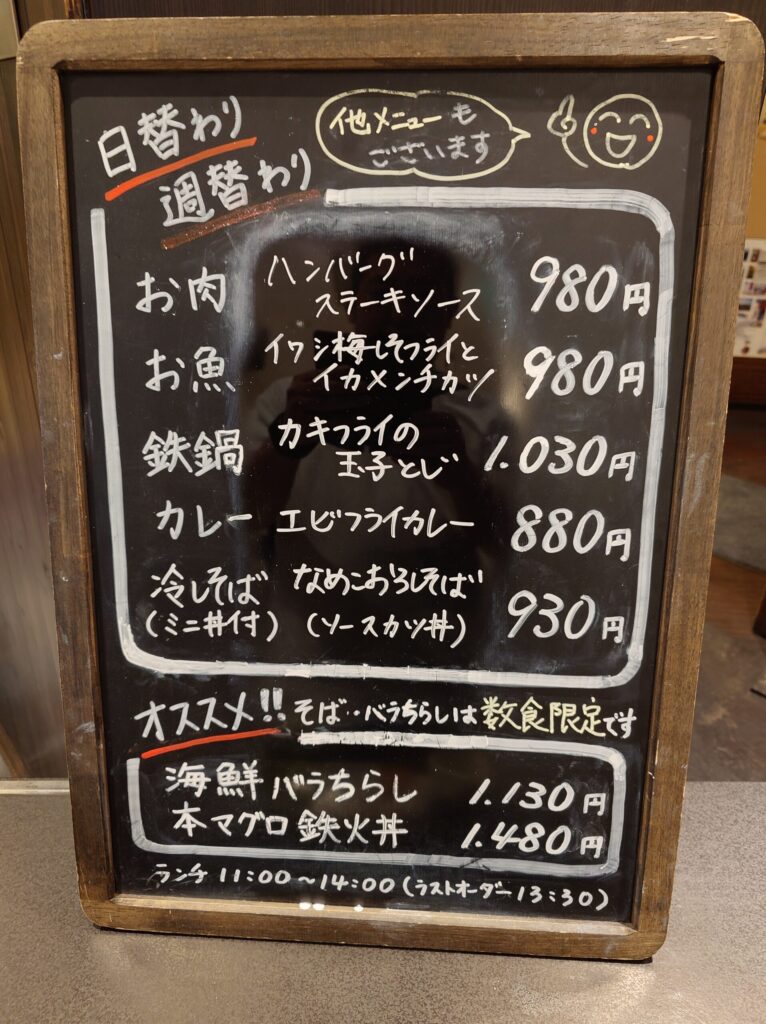 日替わり
週替わり
他メニューも
ございます
お肉 ハンバーグ
ステーキソース 980円
お魚 イワシ梅しそフライと
イカメンチカツ 980円
鉄鍋 カキフライの
玉子とじ 1.030円
カレー エビフライカレー 880円
冷しそば なめこおろしそば
(ミニ丼付) (ソースカツ丼) 930円
オススメ!! そば・・バラちらしは数食限定です
海鮮バラちらし 1.130円
本マグロ鉄火丼 1.480円
ランチ 11:00～14:00(ラストオーダー13:30)